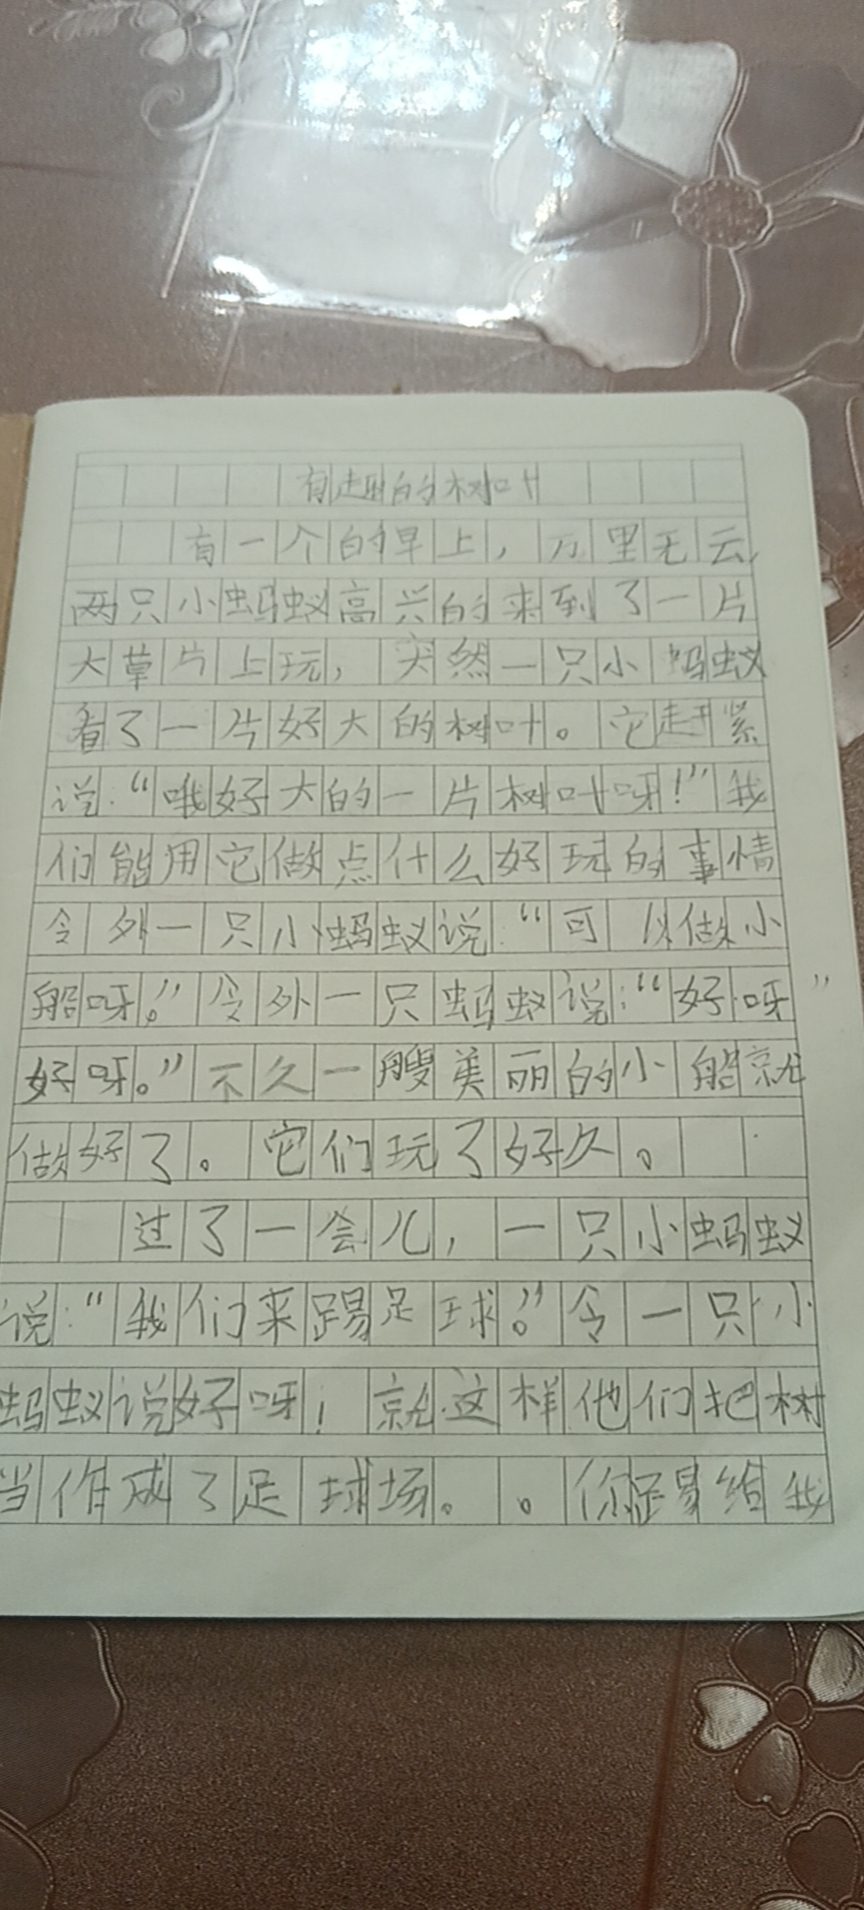 有趣的树叶
有一个的早上，万里无云，
两只小蚂蚁高兴的来到了一片
大草片上玩，突然一只小蚂蚁
看了一片好大的树叶。它赶紧
说：“哦好大的一片树叶呀！”我
们能用它做点什么好玩的事情
令外一只小蚂蚁说：“可以做小
船呀。”令外一只蚂蚁说：“好呀”
好呀。”不久一艘美丽的小船就
做好了。它们玩了好久。
过了一会儿，一只小蚂蚁
说：“我们来踢足球。”令一只小
蚂蚁说好呀！就这样他们把树
当作成了足球场。。你踢给我